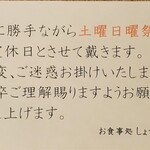 に勝手ながら土曜日曜祭
定休日とさせて戴きます。
変、ご迷惑お掛けいたしま
卒ご理解賜りますようお願
上げます。
お食事処 しょ